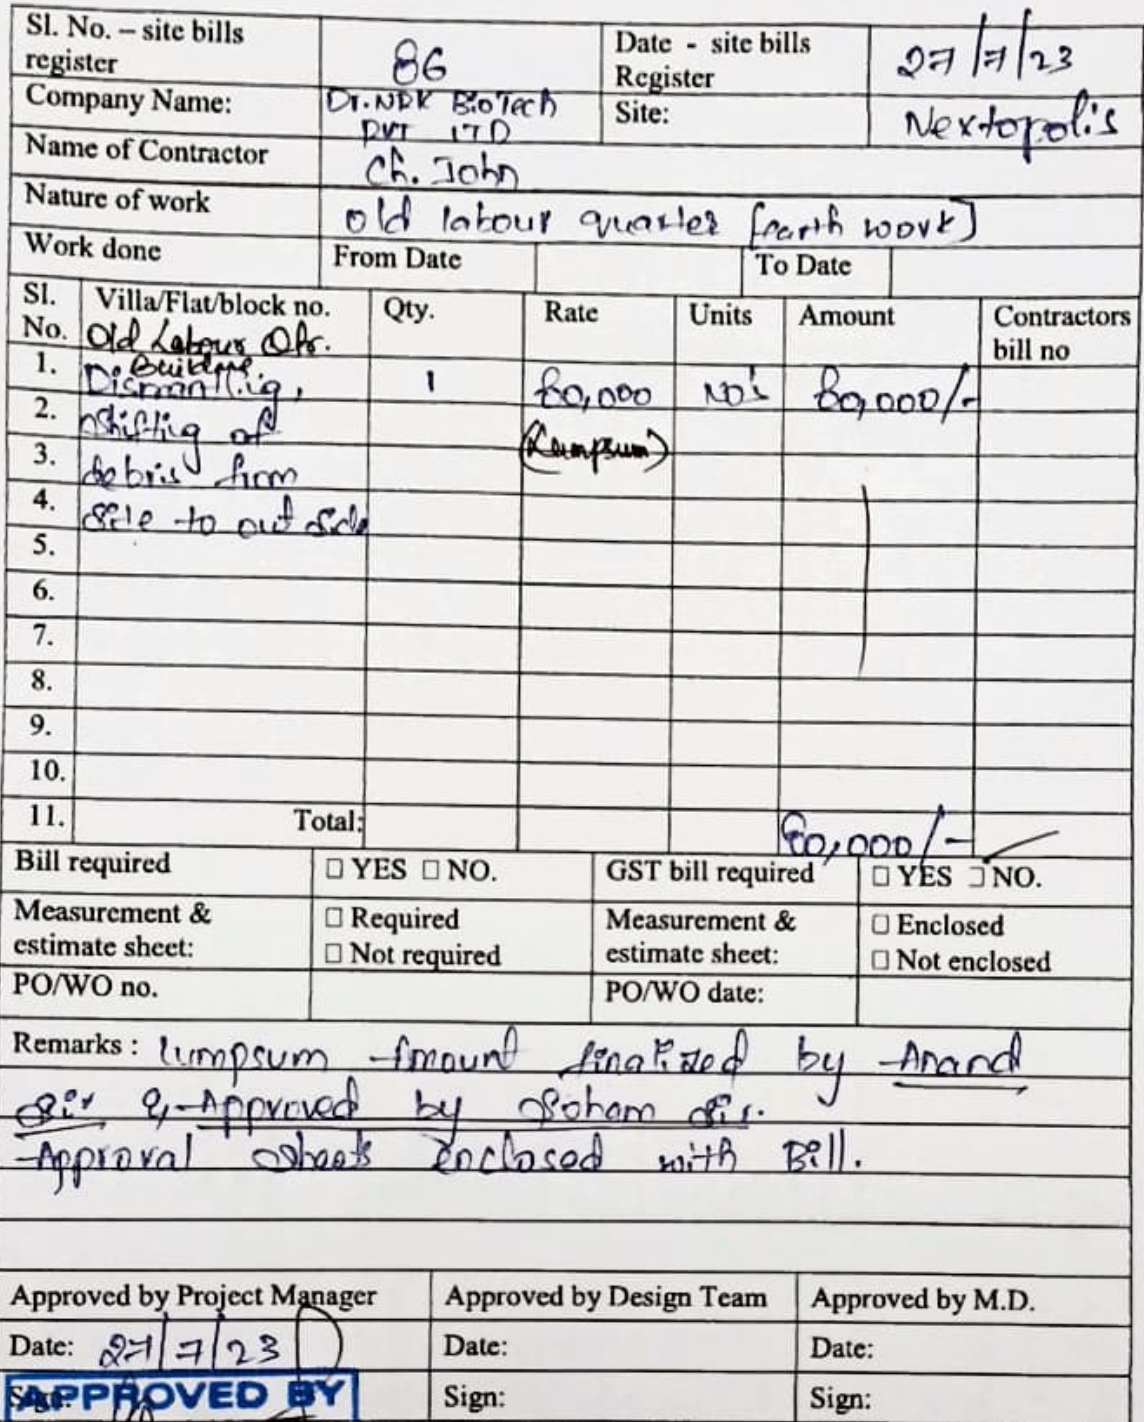 Sl. No. – site bills register 86 Date - site bills Register 27/7/23
Company Name: Dr.NRK BioTech PVT LTD Site: Nextopolis
Name of Contractor Ch. John
Nature of work old labour quarter [earth work]
Work done From Date To Date
Sl. No. Villa/Flat/block no. Qty. Rate Units Amount Contractors bill no
Old Labour Qtr.
Building
1. Dismantlig, 1 80,000 No's 80,000/-
2. shiftig of (Lumpsum)
3. debris from
4. site to out side
5.
6.
7.
8.
9.
10.
11. Total: 80,000/-
Bill required □ YES □ NO. GST bill required □ YES □ NO.
Measurement & estimate sheet: □ Required □ Not required Measurement & estimate sheet: □ Enclosed □ Not enclosed
PO/WO no. PO/WO date:
Remarks : lumpsum Amount finalized by Anand
Sir & Approved by Soham Sir.
Approval sheets enclosed with Bill.
Approved by Project Manager Approved by Design Team Approved by M.D.
Date: 27/7/23 Date: Date:
Sign: APPROVED BY Sign: Sign: